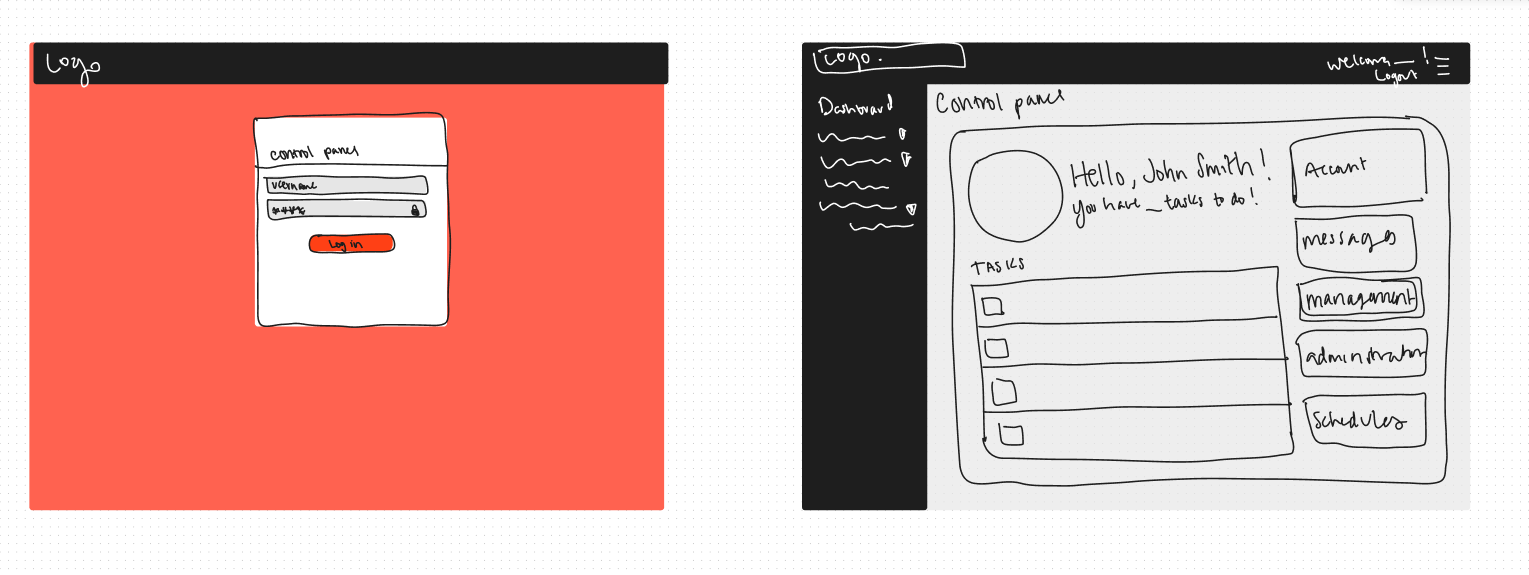 Logo
control panel
username
****
Log in
Logo.
Welcome __ !
Logout
Dashboard
Control panel
Hello, John Smith!
You have __ tasks to do!
TASKS
Account
messages
management
administration
Schedules